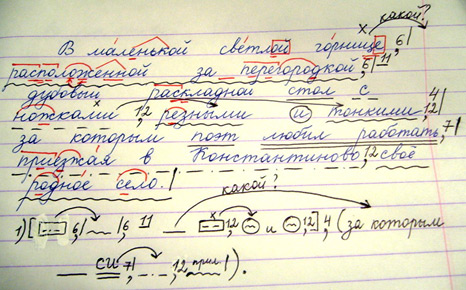 какой?
В маленькой светлой горнице, 6|
расположенной за перегородкой, 6| 11
дубовый раскладной стол с 4
ножками, 12 резными и тонкими, 12|
за которым поэт любил работать, 7|
приезжая в Константиново, 12 своё
родное село.|
какой?
1) [ , 6| |, 6 11 , 12 и , 12], 4, (за которым
си 7| , 12 прил.|).